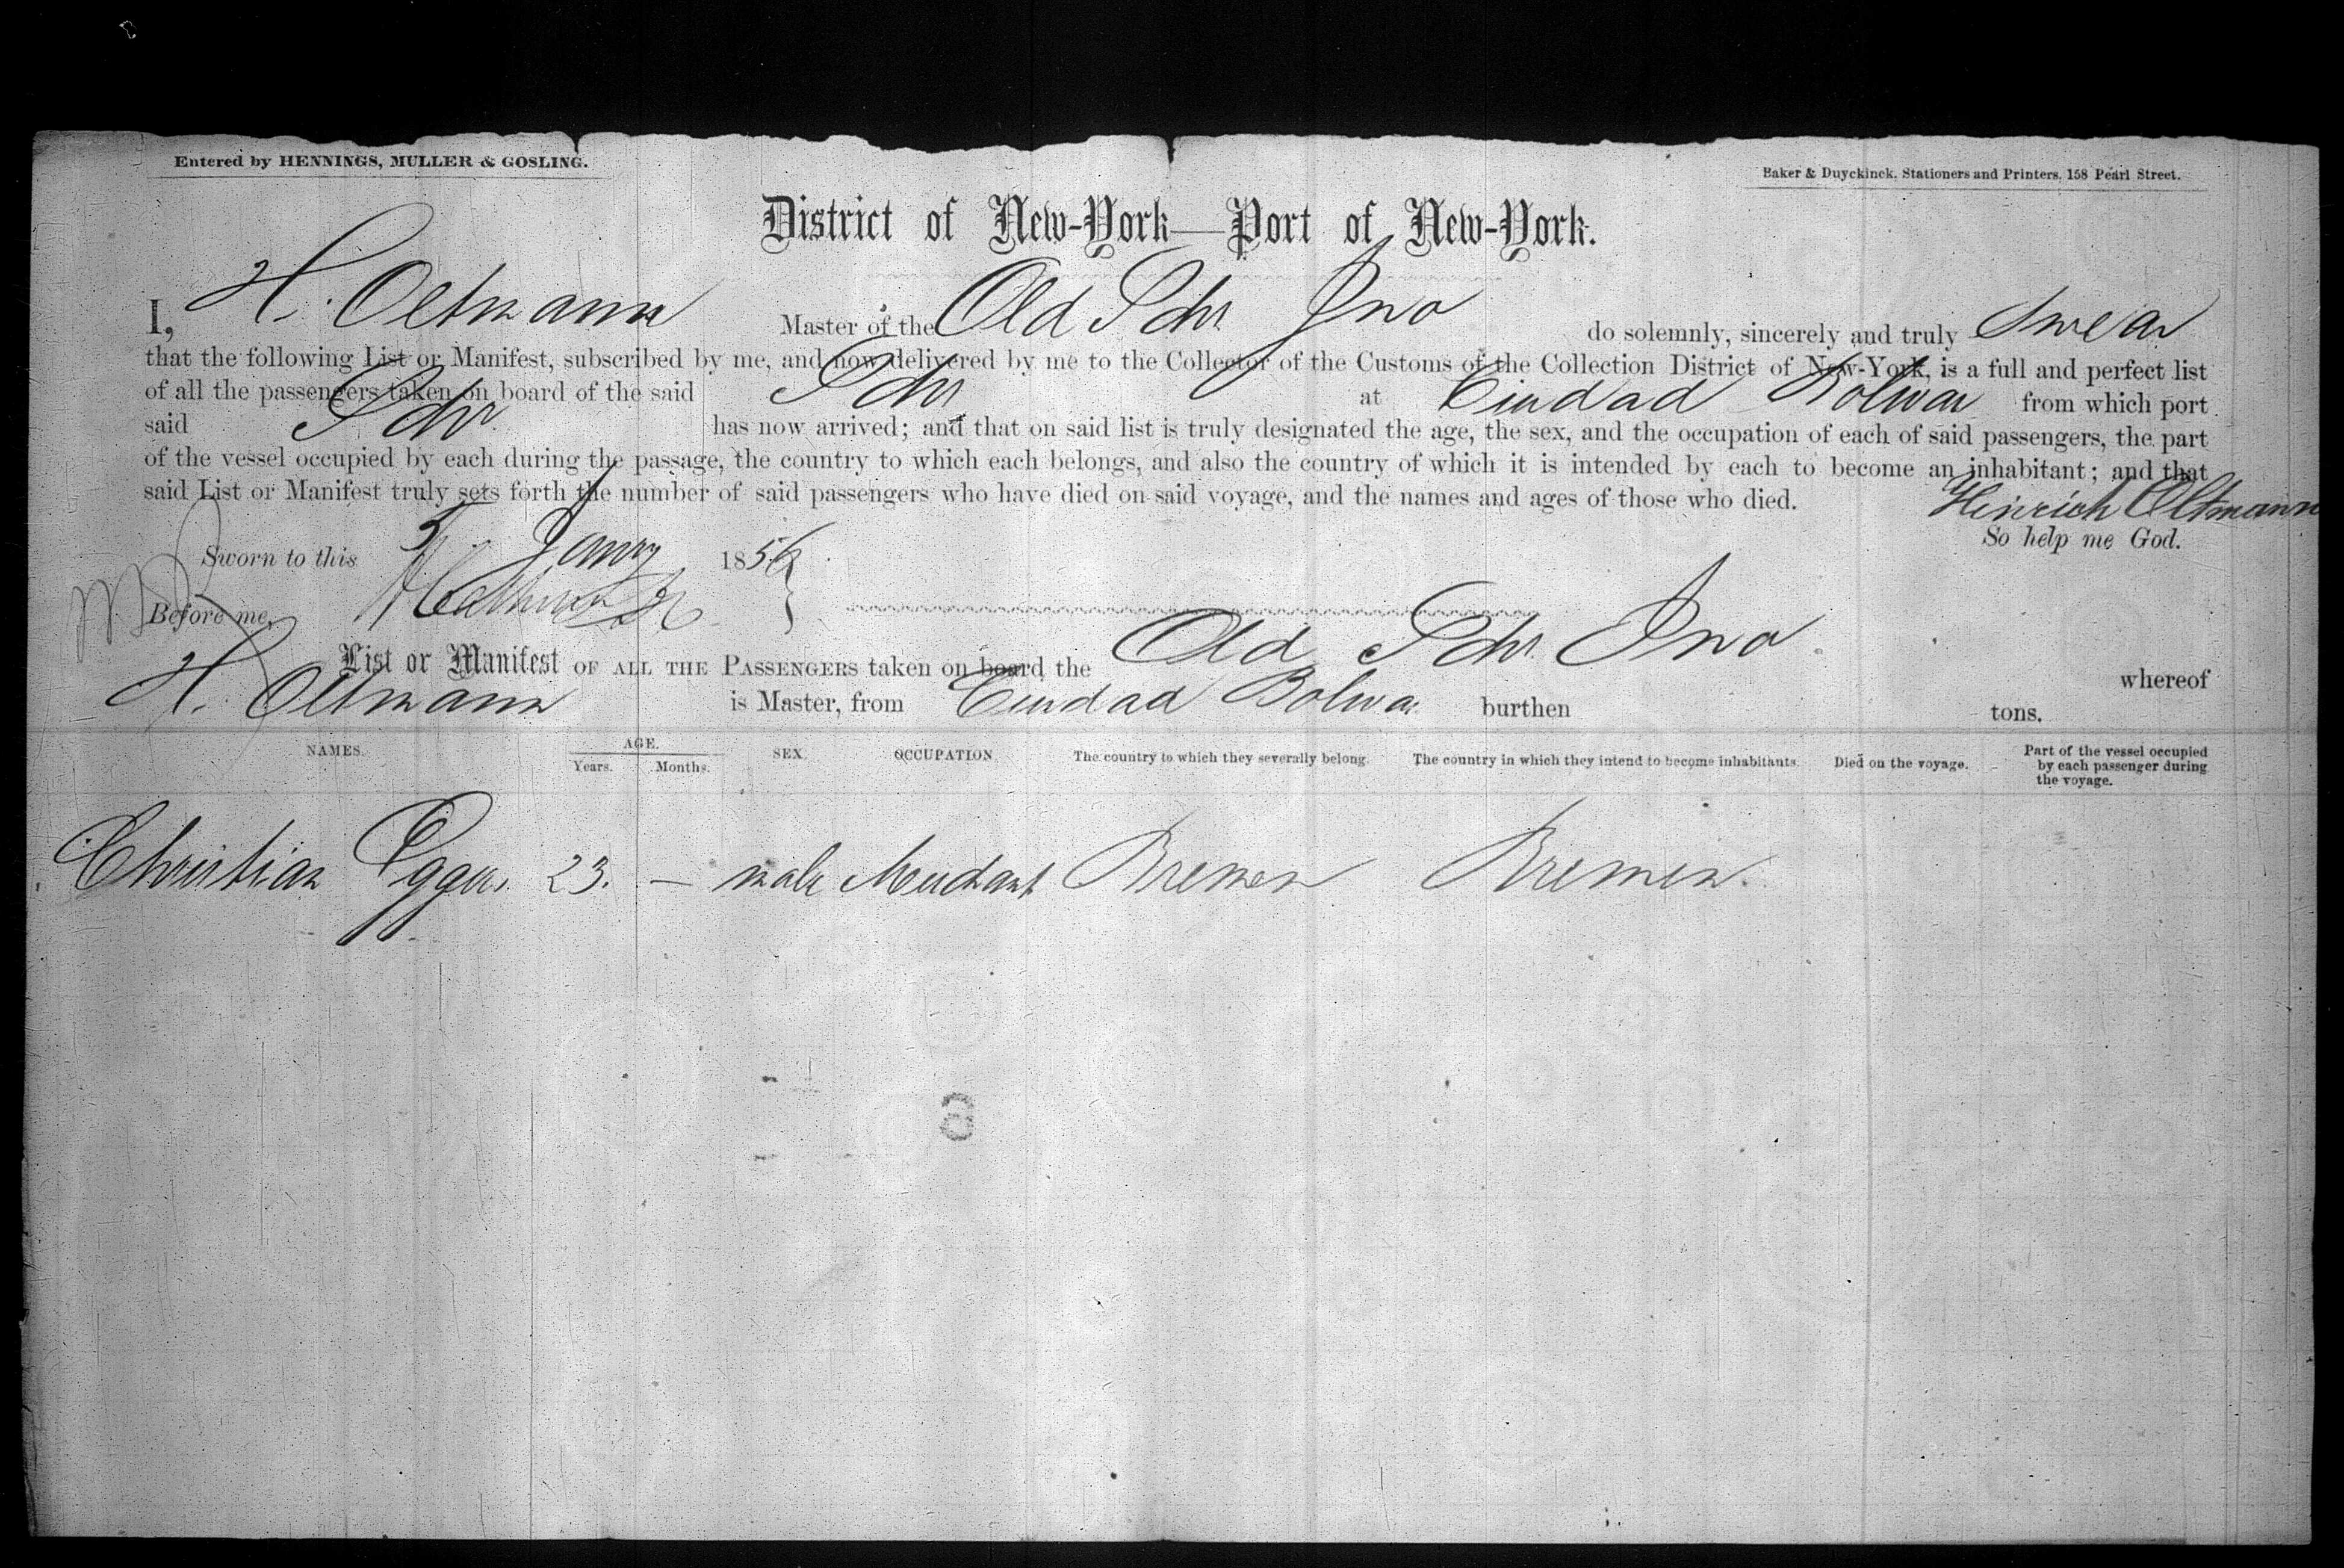 Entered by HENNINGS, MULLER & GOSLING.
Baker & Duyckinck, Stationers and Printers, 158 Pearl Street.
District of New-York—Port of New-York.
I, H. Oltmann Master of the Old Schr Ino do solemnly, sincerely and truly Swear
that the following List or Manifest, subscribed by me, and now delivered by me to the Collector of the Customs of the Collection District of New-York, is a full and perfect list
of all the passengers taken on board of the said Schr at Ciudad Bolivar from which port
said Schr has now arrived; and that on said list is truly designated the age, the sex, and the occupation of each of said passengers, the part
of the vessel occupied by each during the passage, the country to which each belongs, and also the country of which it is intended by each to become an inhabitant; and that
said List or Manifest truly sets forth the number of said passengers who have died on said voyage, and the names and ages of those who died.
Heinrich Oltmann
Sworn to this 5 Jany 1856
So help me God.
Before me,
List or Manifest OF ALL THE PASSENGERS taken on board the Old Schr Ino whereof
H. Oltmann is Master, from Ciudad Boliva burthen tons.
NAMES. AGE. Years. Months. SEX. OCCUPATION. The country to which they severally belong. The country in which they intend to become inhabitants. Died on the voyage. Part of the vessel occupied by each passenger during the voyage.
Christian 23. — male Merchant Bremen Bremen.